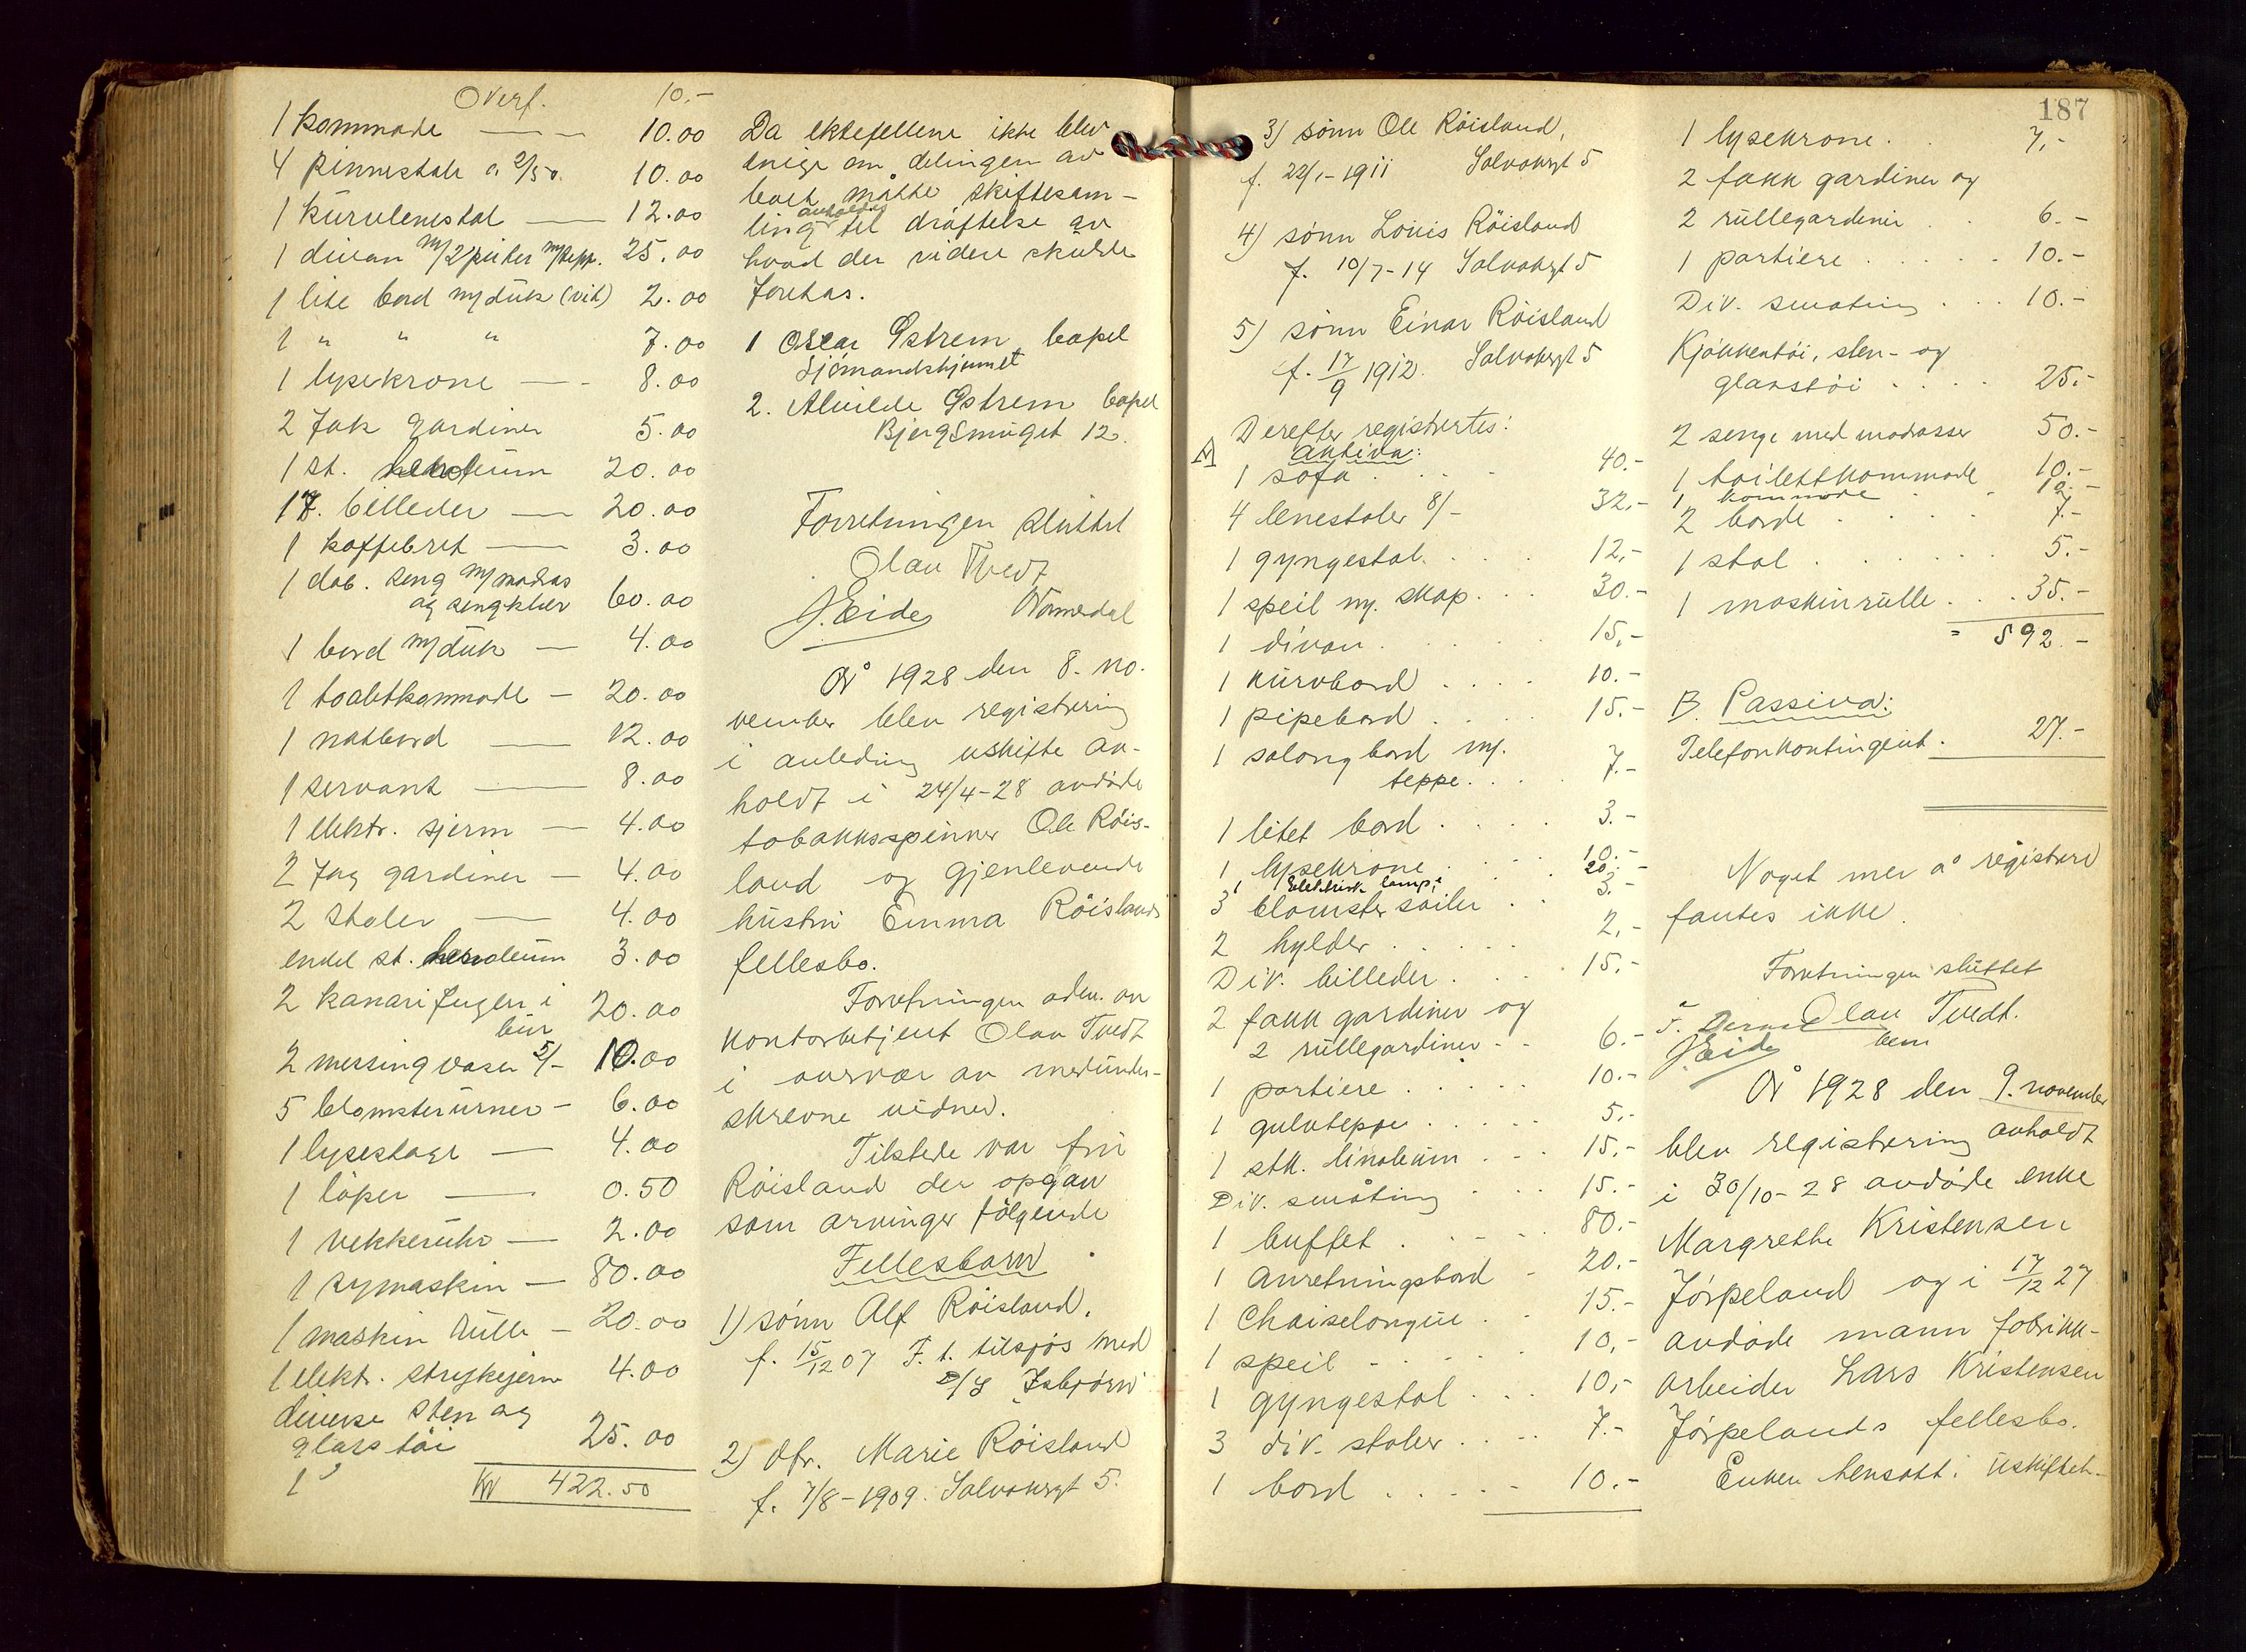 Overf. 10.-
1 kommode 10.00
4 pinnestole a 2/50. 10.00
1 kurvlenestol 12.00
1 divan m/2 puter m/tepp. 25.00
1 lite bord m/duk (vit) 2.00
1 " " " 7.00
1 lysekrone 8.00
2 Fak gardiner 5.00
1 st. 20.00
17. billeder 20.00
1 kaffebret 3.00
1 dob. seng m/madras
og sengklær 60.00
1 bord m/duk 4.00
1 toaletkommode 20.00
1 natbord 12.00
1 servant 8.00
1 elektr. sjerm 4.00
2 Fag gardiner 4.00
2 stoler 4.00
endel st. 3.00
2 kanarifugler i
bur 20.00
2 messingvaser 5/- 10.00
5 blomsterurner 6.00
1 lysestage 4.00
1 løper 0.50
1 vekkeruhr 2.00
1 symaskin 80.00
1 maskin rulle 20.00
1 elektr. strykejern 4.00
diverse sten og
glastøi 25.00
1
Kr 422.50
Da ektefellene ikke blev
enige om delingen av
boet måtte skiftesam-
ling avholdes til drøftelse av
hvad der videre skulde
foretas.
1 Oscar Østrem, bopel
Sjömandshjemmet
2. Alvilde Østrem bopel
Bjergsmuget 12.
Forretningen sluttet
Olav Tvedt
J. Eide
År 1928 den 8. no-
vember blev registrering
i anledning uskifte av-
holdt i 24/4-28 avdøde
tobakksspinner Ole Røis-
land og gjenlevende
hustru Emma Røislands
fellesbo.
Forretningen adm. av
kontorbetjent Olav Tvedt
i overvær av medunder-
skrevne vidner.
Tilstede var fru
Røisland der opgav
som arvinger følgende
Fellesbarn
1) sønn Alf Røisland.
f. 15/12 07 F. t. tilsjøs med
D/S Isbjørn
2) dtr. Marie Røisland
f. 7/8-1909. Solvobrgt 5.
187
3) sønn Ole Røisland,
f. 22/1-1911 Solvobrgt 5
4) sønn Louis Røisland
f. 10/7-14 Solvobrgt 5
5) sønn Einar Røisland
f. 17/9 1912. Solvobrgt 5
Derefter registrertes:
A Aktiva:
1 sofa 40.-
4 lenestoler 8/- 32.-
1 gyngestol 12.-
1 speil m. skap 30.-
1 divan 15.-
1 kurvbord 10.-
1 pipebord 15.-
1 salongbord m.
teppe 7.-
1 litet bord 3.-
1 lysekrone 10.-
1 elektrisk lampe 20.-
3 blomstersøiler 3.-
2 hylder 2.-
Div. billeder 15.-
2 fakk gardiner og
2 rullegardiner 6.-
1 portiere 10.-
1 gulvteppe 5.-
1 stk. linoleum 15.-
Div. småting 15.-
1 buffet 80.-
1 anretningsbord 20.-
1 Chaiselongue 15.-
1 speil 10.-
1 gyngestol 10.-
3 div. stoler 7.-
1 bord 10.-
1 lysekrone 7.-
2 fakk gardiner og
2 rullegardiner 6.-
1 portiere 10.-
Div. småting 10.-
Kjøkkentøi, sten- og
glasstøi 25.-
2 senge med madrasser 50.-
1 toilettkommode 10.-
1 kommode 10.-
2 borde 7.-
1 stol 5.-
1 maskinrulle 35.-
= 592.-
B. Passiva:
Telefonkontingent. 27.-
Noget mer å registrere
fantes ikke.
Forretningen sluttet
Olav Tvedt.
J. Eide
År 1928 den 9. november
blev registrering avholdt
i 30/10-28 avdøde enke
Margrethe Kristensen
Jørpeland og i 17/12 27
avdøde mann fabrikk-
arbeider Lars Kristensen
Jørpelands fellesbo.
Enken hensatt i uskiftet-